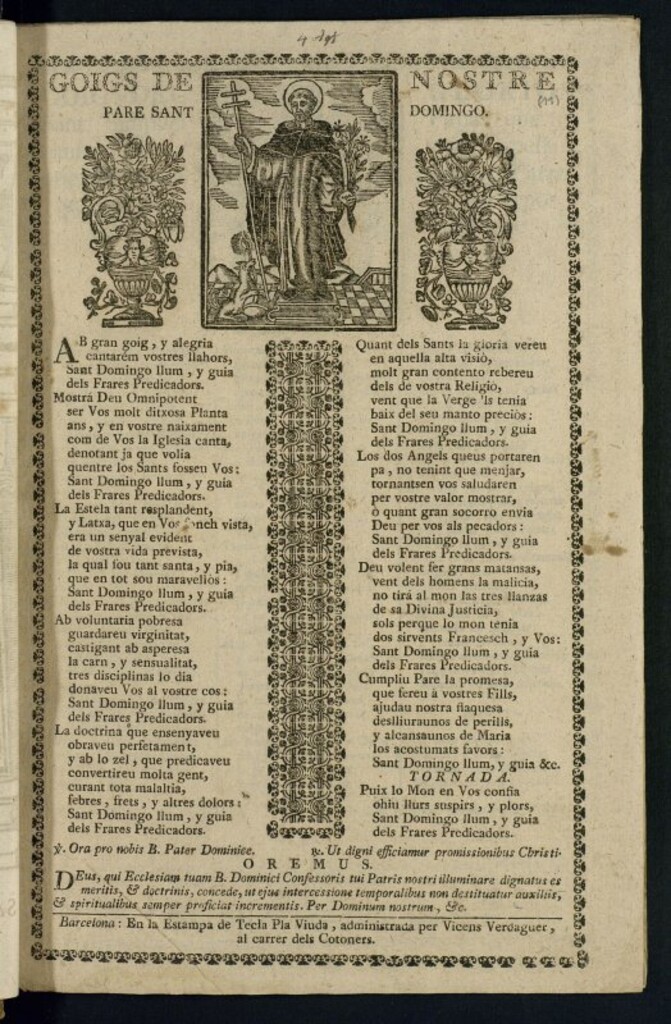 GOIGS DE NOSTRE
PARE SANT DOMINGO.
AB gran goig, y alegria
cantarèm vostres llahors,
Sant Domingo llum, y guia
dels Frares Predicadors.
Mostrá Deu Omnipotent
ser Vos molt ditxosa Planta
ans, y en vostre naixament
com de Vos la Iglesia canta,
denotant ja que volia
quentre los Sants fosseu Vos:
Sant Domingo llum, y guia
dels Frares Predicadors.
La Estela tant resplandent,
y Latxa, que en Vos fonch vista,
era un senyal evident
de vostra vida prevista,
la qual fou tant santa, y pia,
que en tot sou maravellòs:
Sant Domingo llum, y guia
dels Frares Predicadors.
Ab voluntaria pobresa
guardareu virginitat,
castigant ab asperesa
la carn, y sensualitat,
tres disciplinas lo dia
donaveu Vos al vostre cos:
Sant Domingo llum, y guia
dels Frares Predicadors.
La doctrina que ensenyaveu
obraveu perfetament,
y ab lo zel, que predicaveu
convertireu molta gent,
curant tota malaltia,
febres, frets, y altres dolors:
Sant Domingo llum, y guia
dels Frares Predicadors.
Quant dels Sants la gloria vereu
en aquella alta visiò,
molt gran contento rebereu
dels de vostra Religiò,
vent que la Verge 'ls tenia
baix del seu manto preciòs:
Sant Domingo llum, y guia
dels Frares Predicadors.
Los dos Angels queus portaren
pa, no tenint que menjar,
tornantsen vos saludaren
per vostre valor mostrar,
ò quant gran socorro envia
Deu per vos als pecadors:
Sant Domingo llum, y guia
dels Frares Predicadors.
Deu volent fer grans matansas,
vent dels homens la malicia,
no tirá al mon las tres llanzas
de sa Divina Justicia,
sols perque lo mon tenia
dos sirvents Francesch, y Vos:
Sant Domingo llum, y guia
dels Frares Predicadors.
Cumpliu Pare la promesa,
que fereu à vostres Fills,
ajudau nostra flaquesa
deslliuraunos de perills,
y alcansaunos de Maria
los acostumats favors:
Sant Domingo llum, y guia &c.
TORNADA.
Puix lo Mon en Vos confia
ohiu llurs suspirs, y plors,
Sant Domingo llum, y guia
dels Frares Predicadors.
℣. Ora pro nobis B. Pater Dominice. ℟. Ut digni efficiamur promissionibus Christi.
OREMUS.
DEus, qui Ecclesiam tuam B. Dominici Confessoris tui Patris nostri illuminare dignatus es
meritis, & doctrinis, concede, ut ejus intercessione temporalibus non destituatur auxiliis,
& spiritualibus semper proficiat incrementis. Per Dominum nostrum, &c.
Barcelona: En la Estampa de Tecla Pla Viuda, administrada per Vicens Verdaguer,
al carrer dels Cotoners.